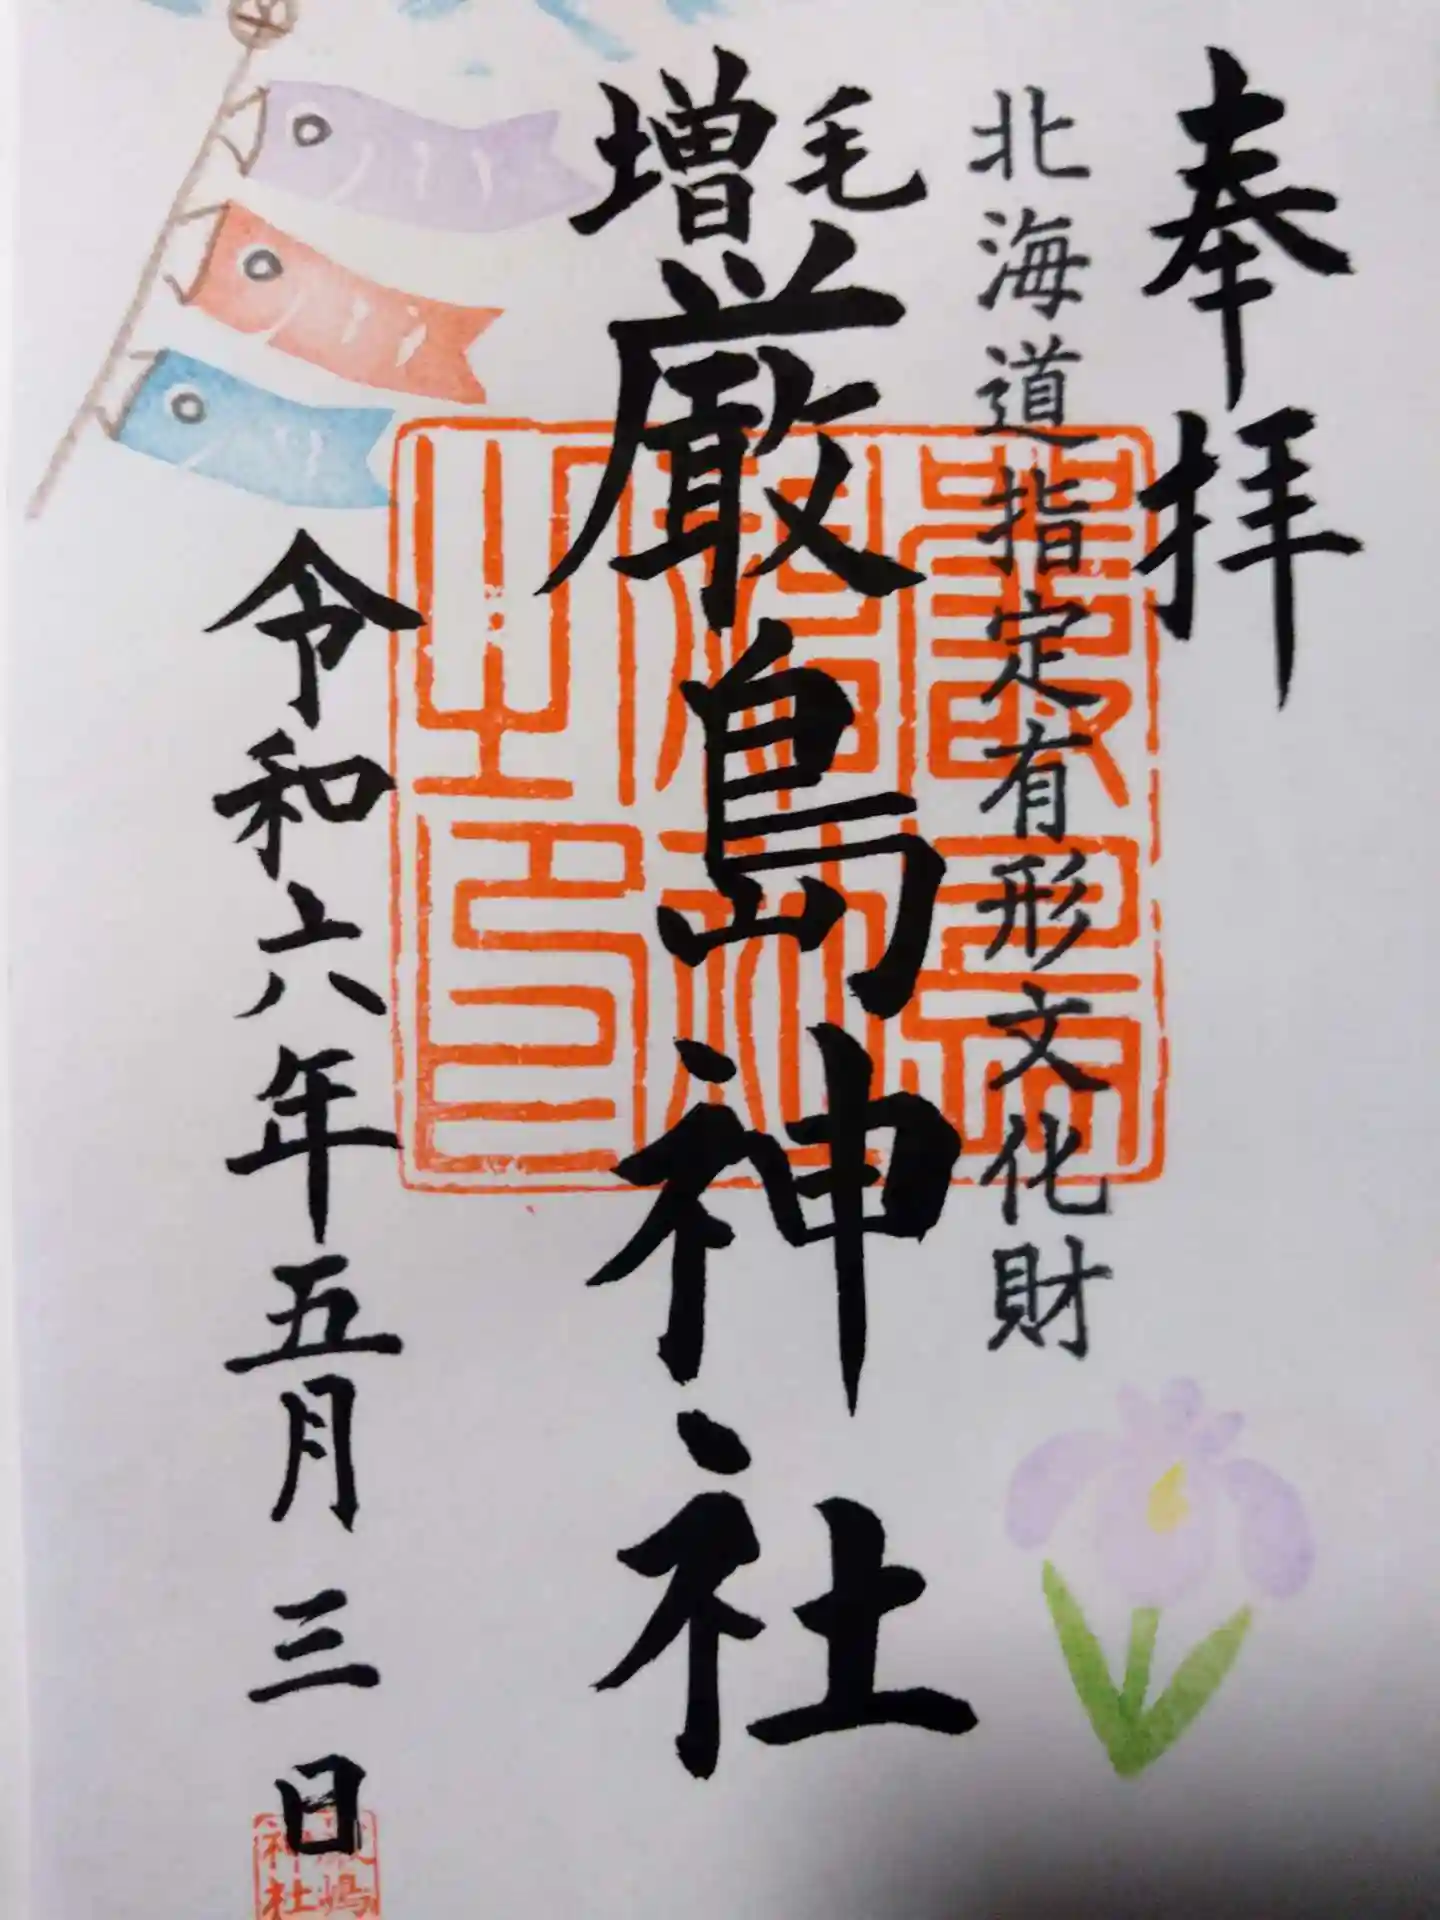 奉拝
北海道指定有形文化財
増毛
厳島神社
令和六年五月三日
神社